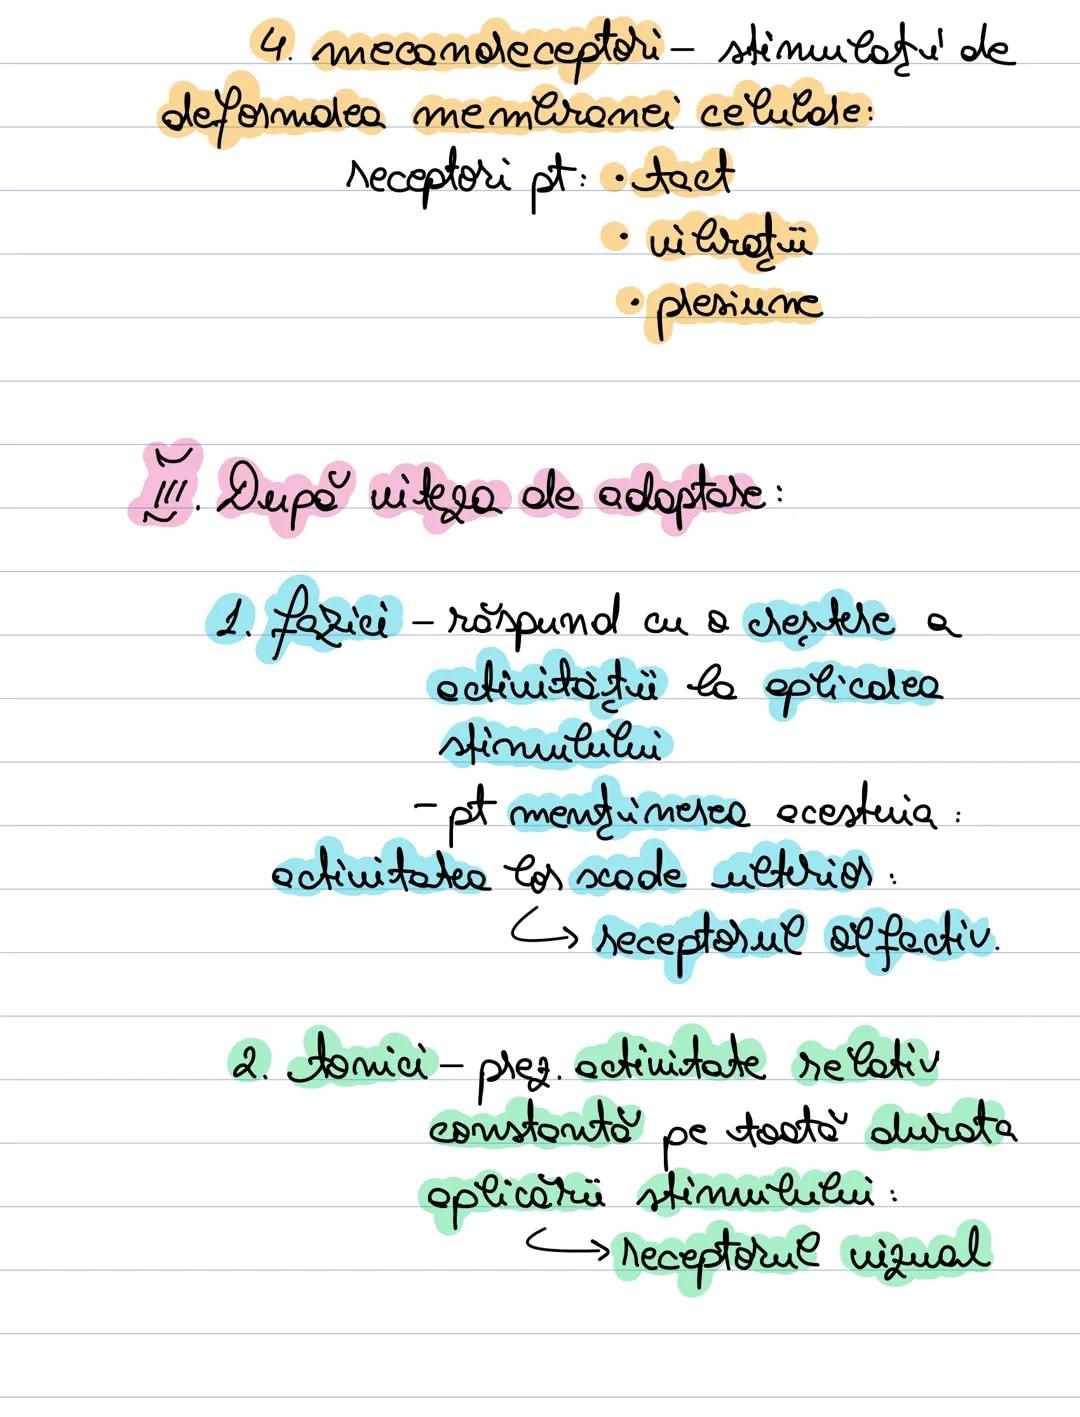 4. mecanoreceptori - stimulați de
deformarea membranei celulare:
receptori pt: • tact
• vibrații
• presiune
III. După viteza de adaptare:
1. fazici - răspund cu o creștere a
activității la aplicarea
stimulului
- pt menținerea acestuia:
activitatea lor scade ulterior:
↳ receptorul olfactiv.
2. tonici - prez. activitate relativ
constantă pe toată durata
aplicării stimulului:
↳ receptorul vizual